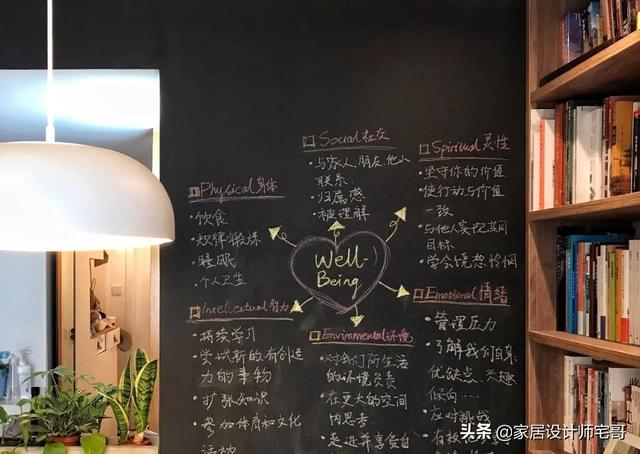 Social 社交
·与家人、朋友、他人
联系
·归属感
·被理解
Spiritual 灵性
·坚守你的价值
·使行动与价值
一致
·与他人实现共同
目标
·学会饶恕怜悯
Physical 身体
·饮食
·规律锻炼
·睡眠
·个人卫生
Well-
Being
Intellectual 智力
·持续学习
·尝试新的有创造
力的事物
·扩张知识
·参加体育和文化
活动
Enviromental 环境
·对我们所生活
的环境负责
·在更大的空间
内思考
Emotional 情绪
·管理压力
·了解我们自身
优缺点、兴趣
倾向……
·应对挑战
头条 @家居设计师宅哥